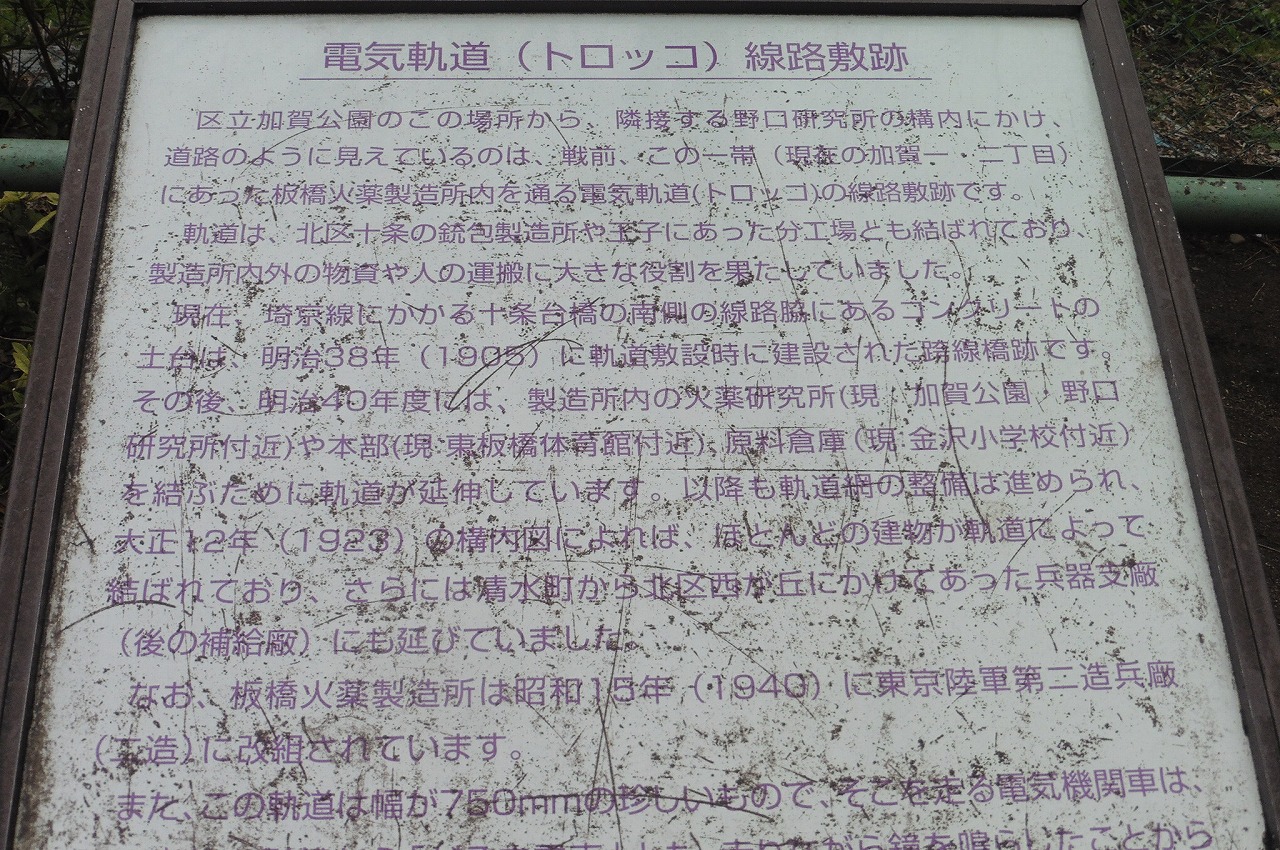 電気軌道（トロッコ）線路敷跡
区立加賀公園のこの場所から、隣接する野口研究所の構内にかけ、
道路のように見えているのは、戦前、この一帯（現在の加賀一・二丁目）
にあった板橋火薬製造所内を通る電気軌道(トロッコ)の線路敷跡です。
軌道は、北区十条の銃包製造所や王子にあった分工場とも結ばれており、
製造所内外の物資や人の運搬に大きな役割を果たしていました。
現在、埼京線にかかる十条台橋の南側の線路脇にあるコンクリートの
土台は、明治38年（1905）に軌道敷設時に建設された跨線橋跡です。
その後、明治40年度には、製造所内の火薬研究所(現 加賀公園・野口
研究所付近)や本部(現 東板橋体育館付近) 原料倉庫(現 金沢小学校付近)
を結ぶために軌道が延伸しています。以降も軌道網の整備は進められ、
大正12年（1923）の構内図によれば、ほとんどの建物が軌道によって
結ばれており、さらには清水町から北区西が丘にかけてあった兵器支廠
（後の補給廠）にも延びていました。
なお、板橋火薬製造所は昭和15年（1940）に東京陸軍第二造兵廠
(二造)に改組されています。
また、この軌道は幅が750mmの珍しいもので、そこを走る電気機関車は、
走りながら鐘を鳴らしたことから